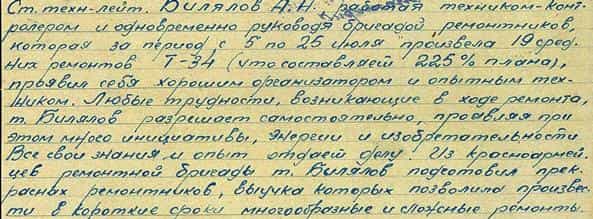 Ст. техн-лейт. Билялов А.Н. работая техником-конт-
ролером и одновременно руководя бригадой ремонтников,
которая за период с 5 по 25 июля произвела 19 сред-
них ремонтов Т-34 (что составляет 225% плана),
проявил себя хорошим организатором и опытным тех-
ником. Любые трудности, возникающие в ходе ремонта,
т. Билялов разрешает самостоятельно, проявляя при
этом много инициативы, энергии и изобретательности.
Все свои знания и опыт отдает делу. Из красноармей-
цев ремонтной бригады т. Билялов подготовил прек-
расных ремонтников, выучка которых позволила произвес-
ти в короткие сроки многообразные и сложные ремонты.